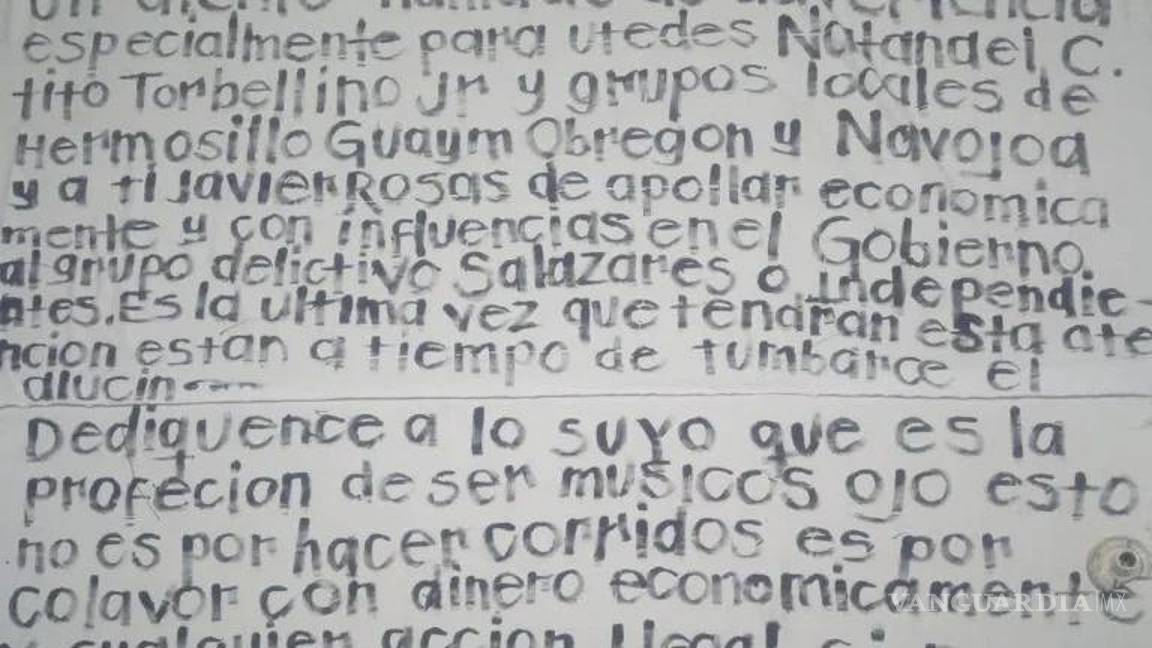 especialmente para utedes Natanael C.
tito Torbellino jr y grupos locales de
Hermosillo Guaym Obregon y Navojoa
y a ti javier Rosas de apollar economica
mente y con influencias en el Gobierno.
al grupo delictivo Salazares o independie-
ntes. Es la ultima vez que tendran esta ate
ncion estan a tiempo de tumbarce el
alucin
Dediquence a lo suyo que es la
profecion de ser musicos ojo esto
no es por hacer corridos es por
colavor con dinero economicamente
y cualquier accion Ilegal
VANGUARDIA|MX